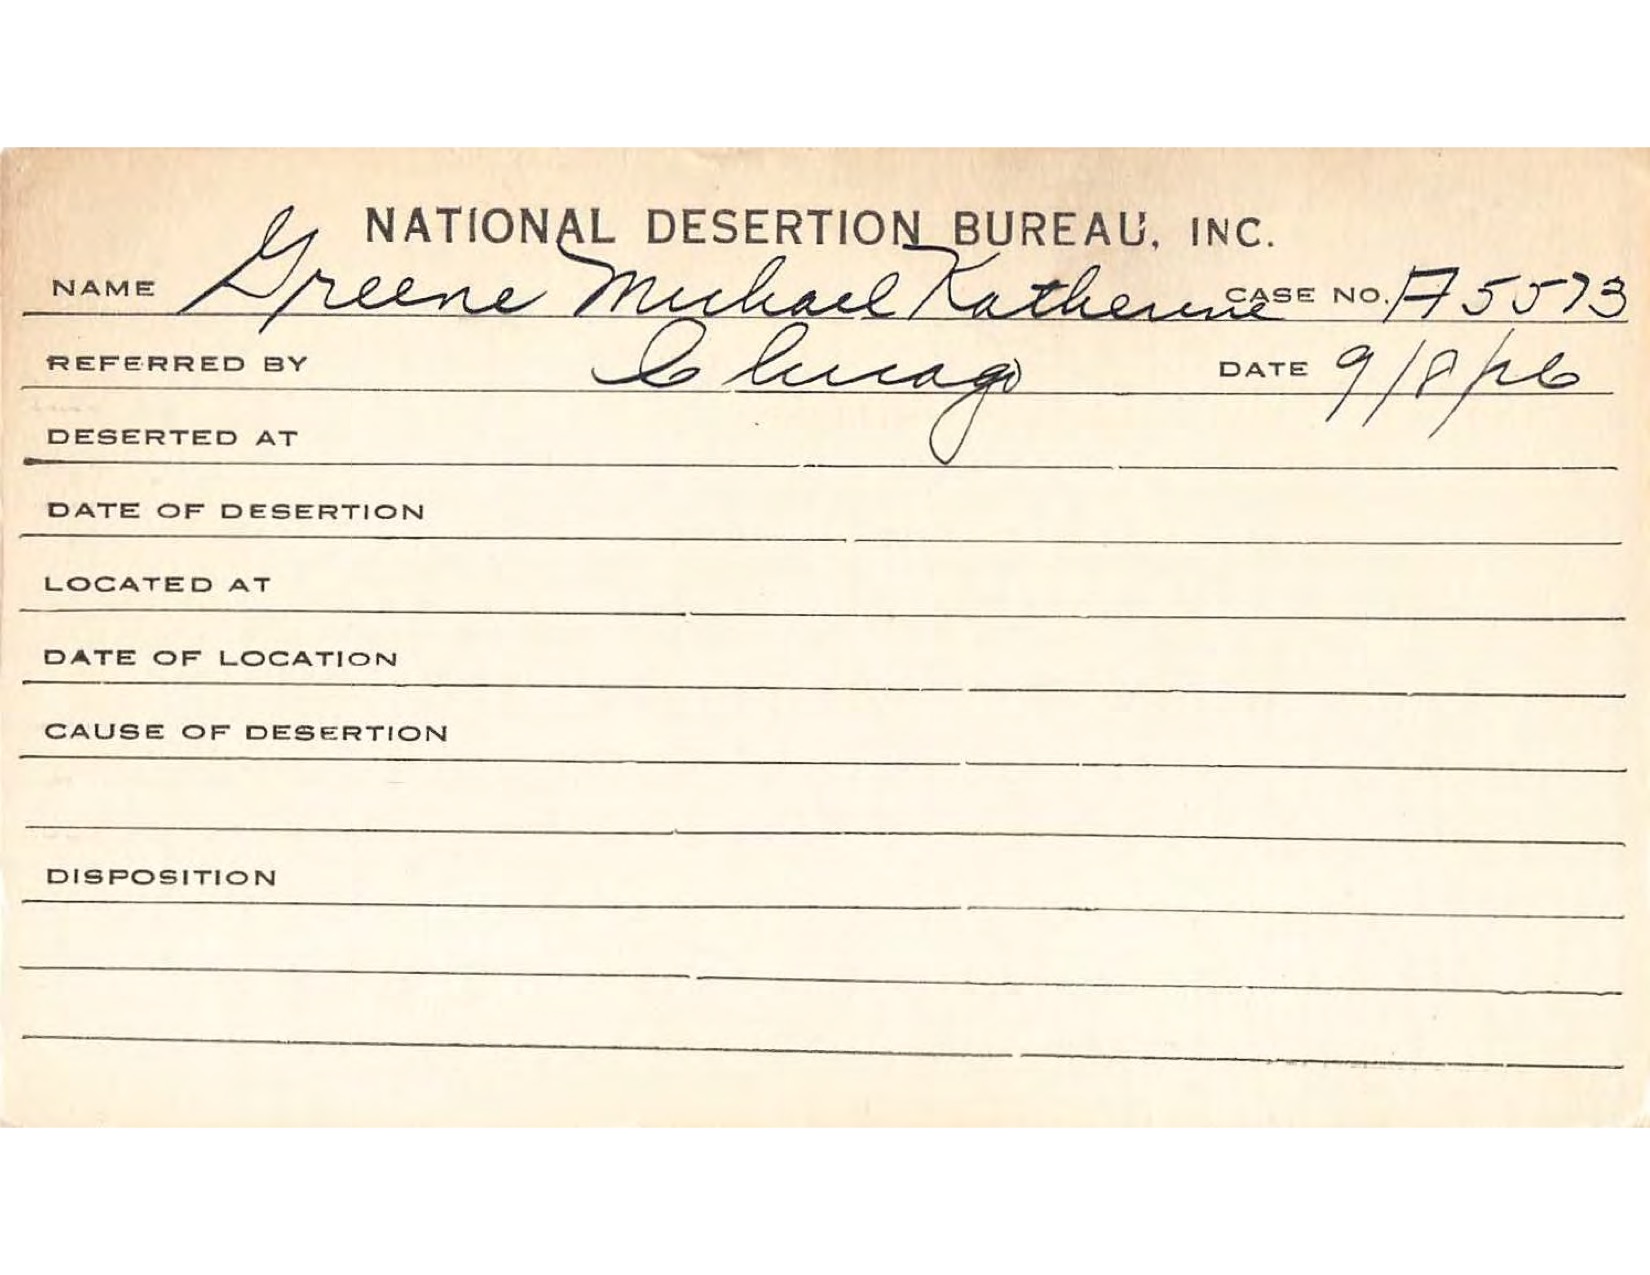 NATIONAL DESERTION BUREAU, INC.
NAME Greene Michael Katherine CASE NO. A5573
REFERRED BY Chicago DATE 9/8/26
DESERTED AT
DATE OF DESERTION
LOCATED AT
DATE OF LOCATION
CAUSE OF DESERTION
DISPOSITION